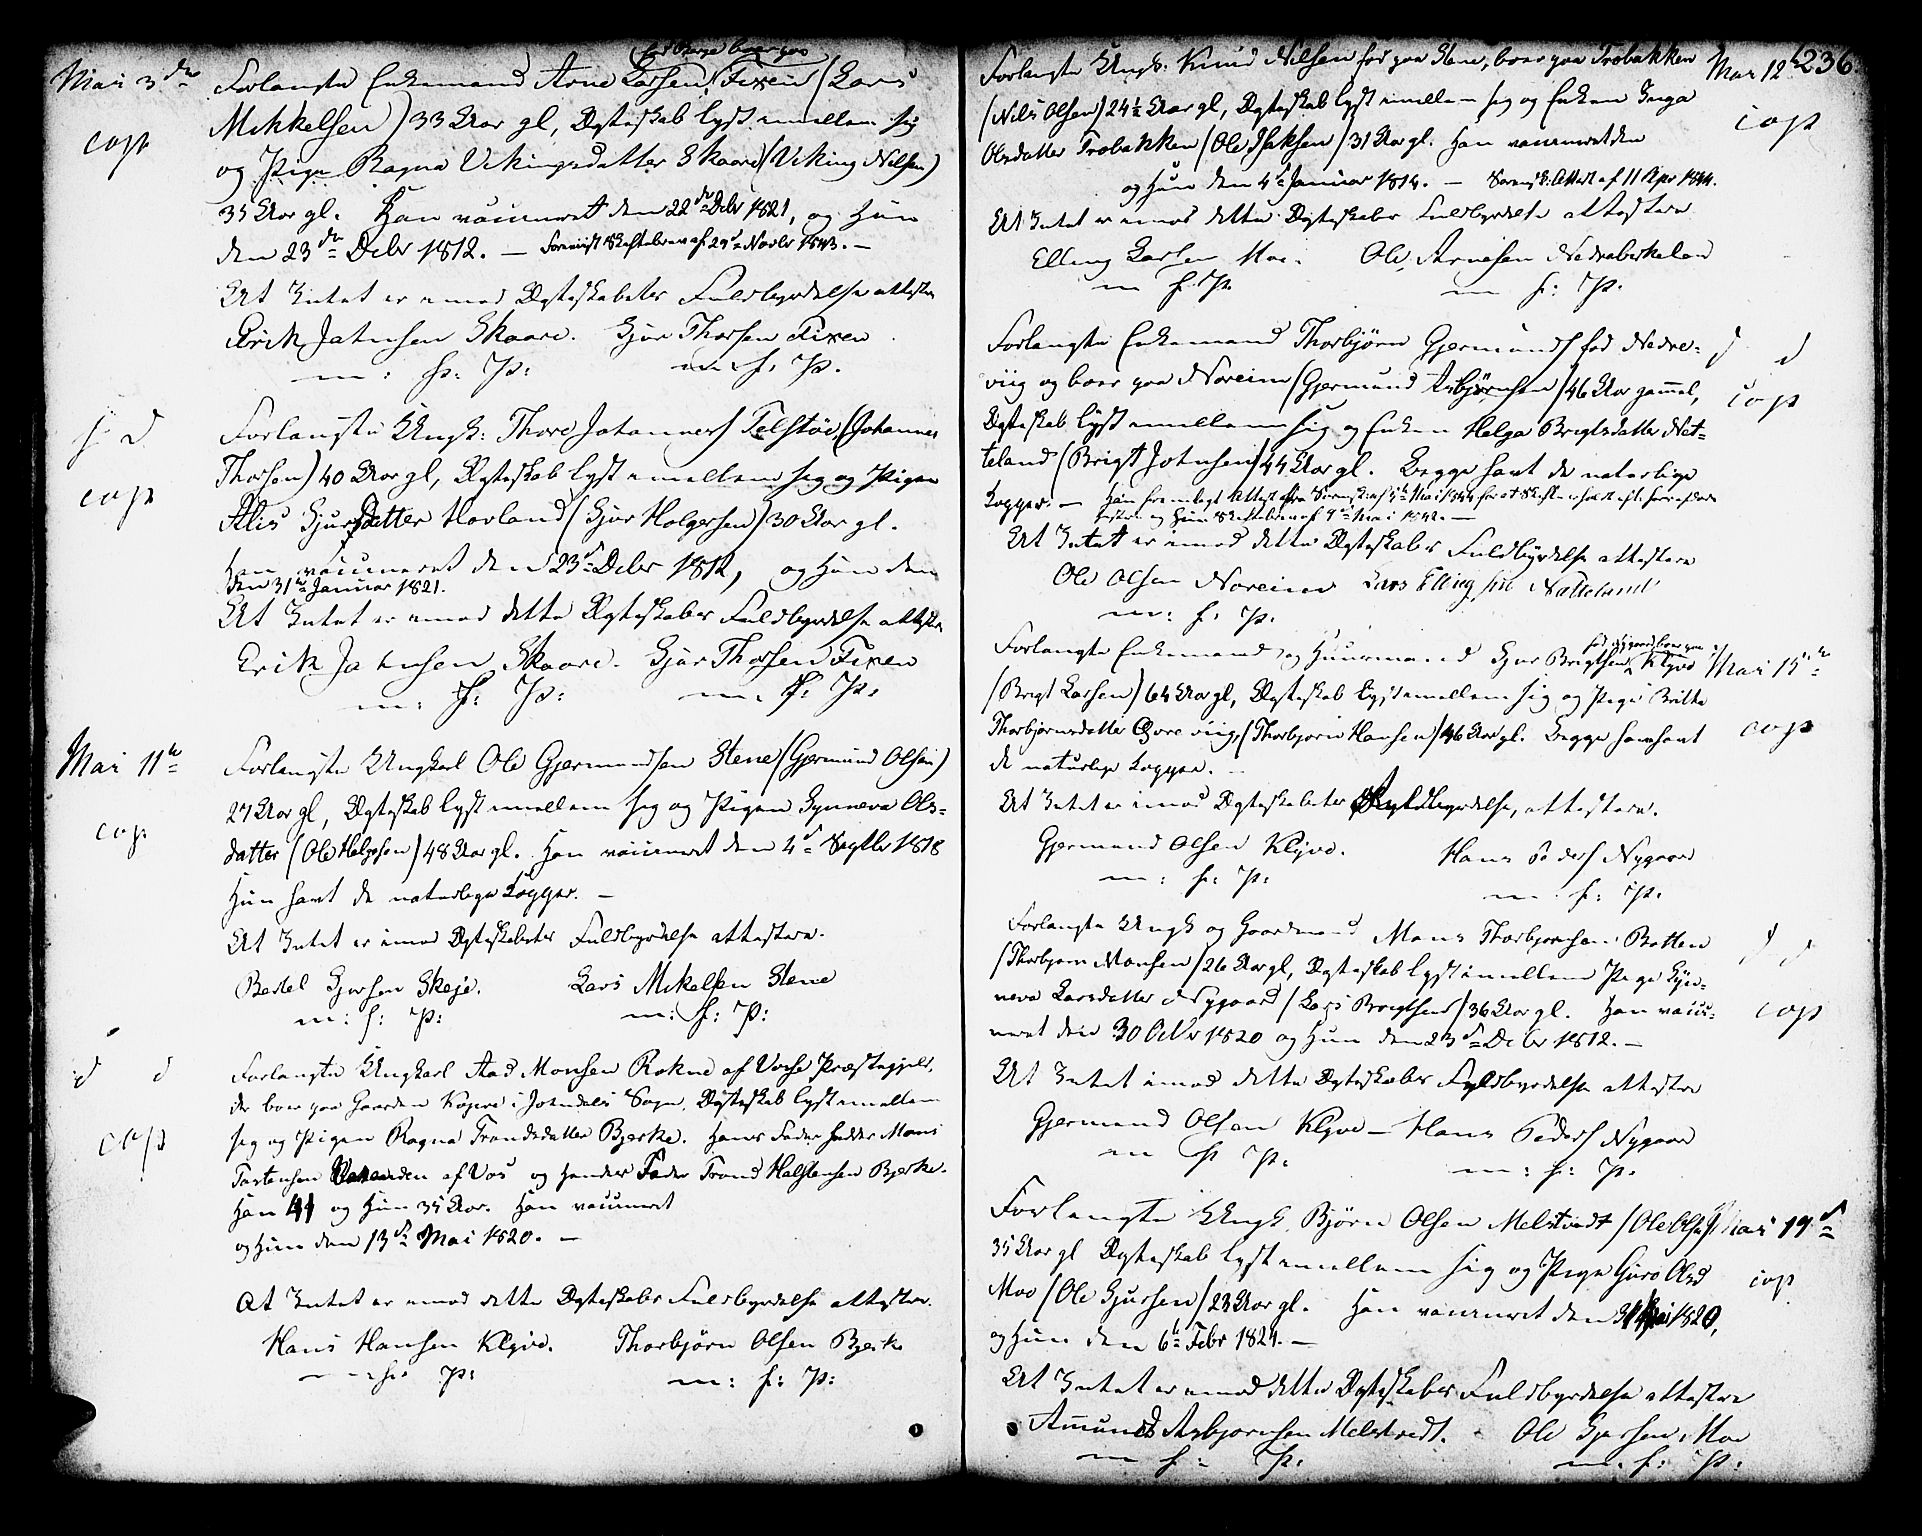 Mai 3die
cop
Forlangte Enkemand Arne Larsen, Fixen (Lars
Mikkelsen) 33 Aar gl, Ægteskab lyst imellem sig
og Pige Ragna Vikingsdatter Skaare (Viking Nilsen)
35 Aar gl. Han vaccineret den 22de Debr 1821, og Hun
den 23de Debr 1812. — Forevist Skiftebrev af 29de Novbr 1843. —
At Intet er imod Ægteskabets Fuldbyrdelse attestere
Erik Johnsen Skaare. Sjur Thorsen Fixen
m: f: P: m: f: P.
f. d.
cop
Forlangte Ungk: Thore Johannes Telstøe, (Johannes
Thorsen) 40 Aar gl, Ægteskab lyst imellem sig og Pigen
Alis Sjursdatter Hovland (Sjur Holgersen) 30 Aar gl.
Han vaccineret den 23de Debr 1812, og Hun den
den 31te Januar 1821.
At Intet er imod dette Ægteskabs Fuldbyrdelse attestere
Erik Johnsen Skaare. Sjur Thorsen Fixen
m: f: P: m. f: P:
Mai 11te
cop
Forlangte Ungkarl Ole Gjermundsen Stene (Gjermund Olsen)
27 Aar gl, Ægteskab lyst imellem sig og Pigen Synneva Ols-
datter (Ole Helgesen) 48 Aar gl. Han vaccineret den 4de Septbr 1818
Hun havt de naturlige Kopper. —
At Intet er imod Ægteskabets Fuldbyrdelse attestere.
Bertel Sjursen Skeje. Lars Mikelsen Stene
m: f: P: m: f: P:
d d
cop
Forlangte Ungkarl Aad Monsen Rokne af Vosse Præstegjeld,
der boer paa Gaarden Kopre i Jondals Sogn, Ægteskab lyst imellem
sig og Pigen Ragna Trondsdatter Bjerke. Hans Fader hedder Mons
Torstensen af Vos og Hendes Fader Trond Halstensen Bjerke.
Han 41 og Hun 35 Aar. Han vaccineret
og Hun den 13de Mai 1820. —
At Intet er imod dette Ægteskabs Fuldbyrdelse attestere.
Hans Hansen Klyve. Thorbjørn Olsen Bjerke
m: f: P: m: f: P:
236.
Forlangte Ungk. Knud Nilsen fød paa Stene, boer paa Trobakken Mai 12te
(Nils Olsen) 24½ Aar gl, Ægteskab lyst imellem sig og Enken Inga
cop
Olsdatter Trobakken (Ole Isaksen) 31 Aar gl. Han vaccineret den
og Hun den 4de Januar 1814. — Sorensk: Attest af 11 Apr 1844.
At Intet er imod dette Ægteskabs Fuldbyrdelse attestere
Elling Larsen Moe. Ole Arnesen Nedreberkeland
m f: P. m f: P.
Forlangte Enkemand Thorbjørn Gjermunds fød Nedre- d d
viig og boer paa Noreim (Gjermund Asbjørnsen) 46 Aar gammel,
cop
Ægteskab lyst imellem sig og Enken Helga Brigtsdatter Net-
teland (Brigt Johnsen) 44 Aar gl. Begge havt de naturlige
Kopper. — Han fremlagt Attest fra Sorensk: af Mai 1844 for at Skifte
og Hun Skiftebrev af Mai 1842. —
At Intet er imod dette Ægteskabs Fuldbyrdelse attestere
Ole Olsen Noreim Lars Elling sen Natteland
m: f: P.
Forlangte Enkemand og Huusmand Sjur Brigtsen, Klyve Mai 15de
(Brigt Larsen) 64 Aar gl, Ægteskab lyst imellem sig og Pige Britta
Thorbjørnsdatter Øvreviig, (Thorbjørn Hansen) 46 Aar gl. Begge have havt
cop
de naturlige Kopper.
At Intet er imod Ægteskabets Fuldbyrdelse, attestere.
Gjermund Olsen Klyve. Hans Peders Nygaard
m: f: P: m. f: P:
Forlangte Ungk og Gaardmand Mons Thorbjørnsen Botten d d
(Thorbjørn Monsen) 26 Aar gl, Ægteskab lyst imellem Pige Syn-
neva Larsdatter Nygaard (Lars Brigtsen) 36 Aar gl. Han vacci-
cop
neret den 30 Octbr 1820 og Hun den 23de Debr 1812. —
At Intet imod dette Ægteskabs Fuldbyrdelse attestere
Gjermund Olsen Klyve — Hans Peders Nygaard
m f P: m: f: P.
Forlangte Ungk. Bjørn Olsen Melstvedt (Ole Olsen) Mai 19de
35 Aar gl Ægteskab lyst imellem sig og Pige Guro Olsd
cop
Moe (Ole Sjursen) 23 Aar gl. Han vaccineret den 31 Mai 1820,
og Hun den 6te Febr 1821. —
At Intet er imod dette Ægteskabs Fuldbyrdelse attestere
Amund Asbjørnsen Melstvedt. Ole Sjursen Moe
m f: P. m. f: P: